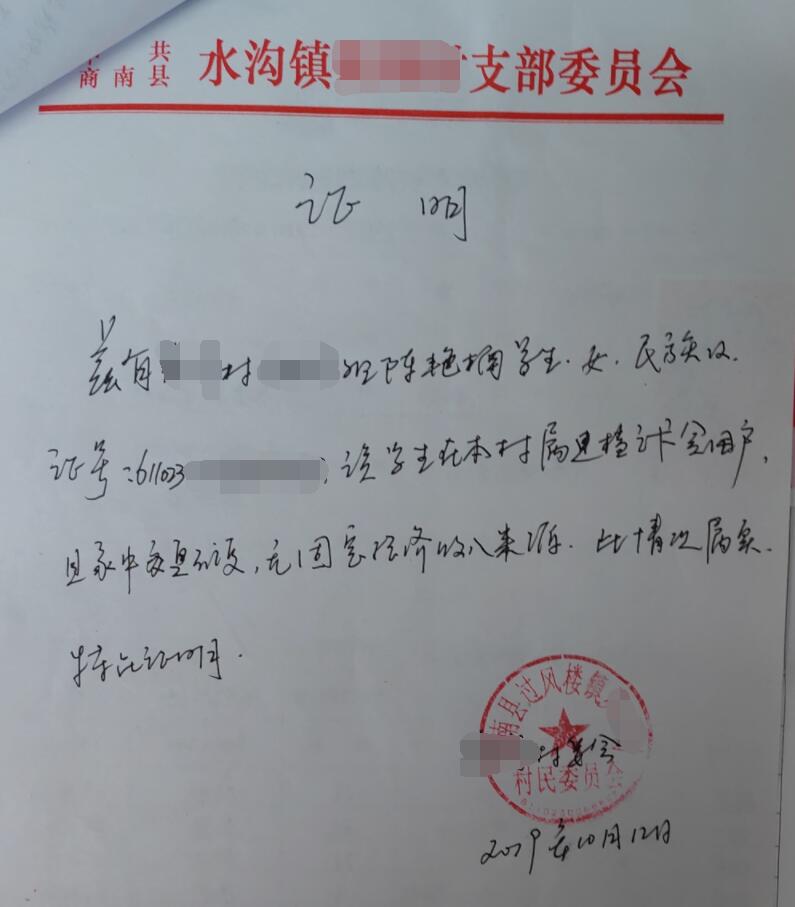 中共
商南县 水沟镇 支部委员会
证明
兹有 村 组陈艳楠学生.女.民族汉.
证号:611023 ,该学生在本村属建档立卡贫困户,
且家中 ,无固定经济收入来源.此情况属实.
特此证明.
南县过风楼镇
村委会
村民委员会
2019年10月12日